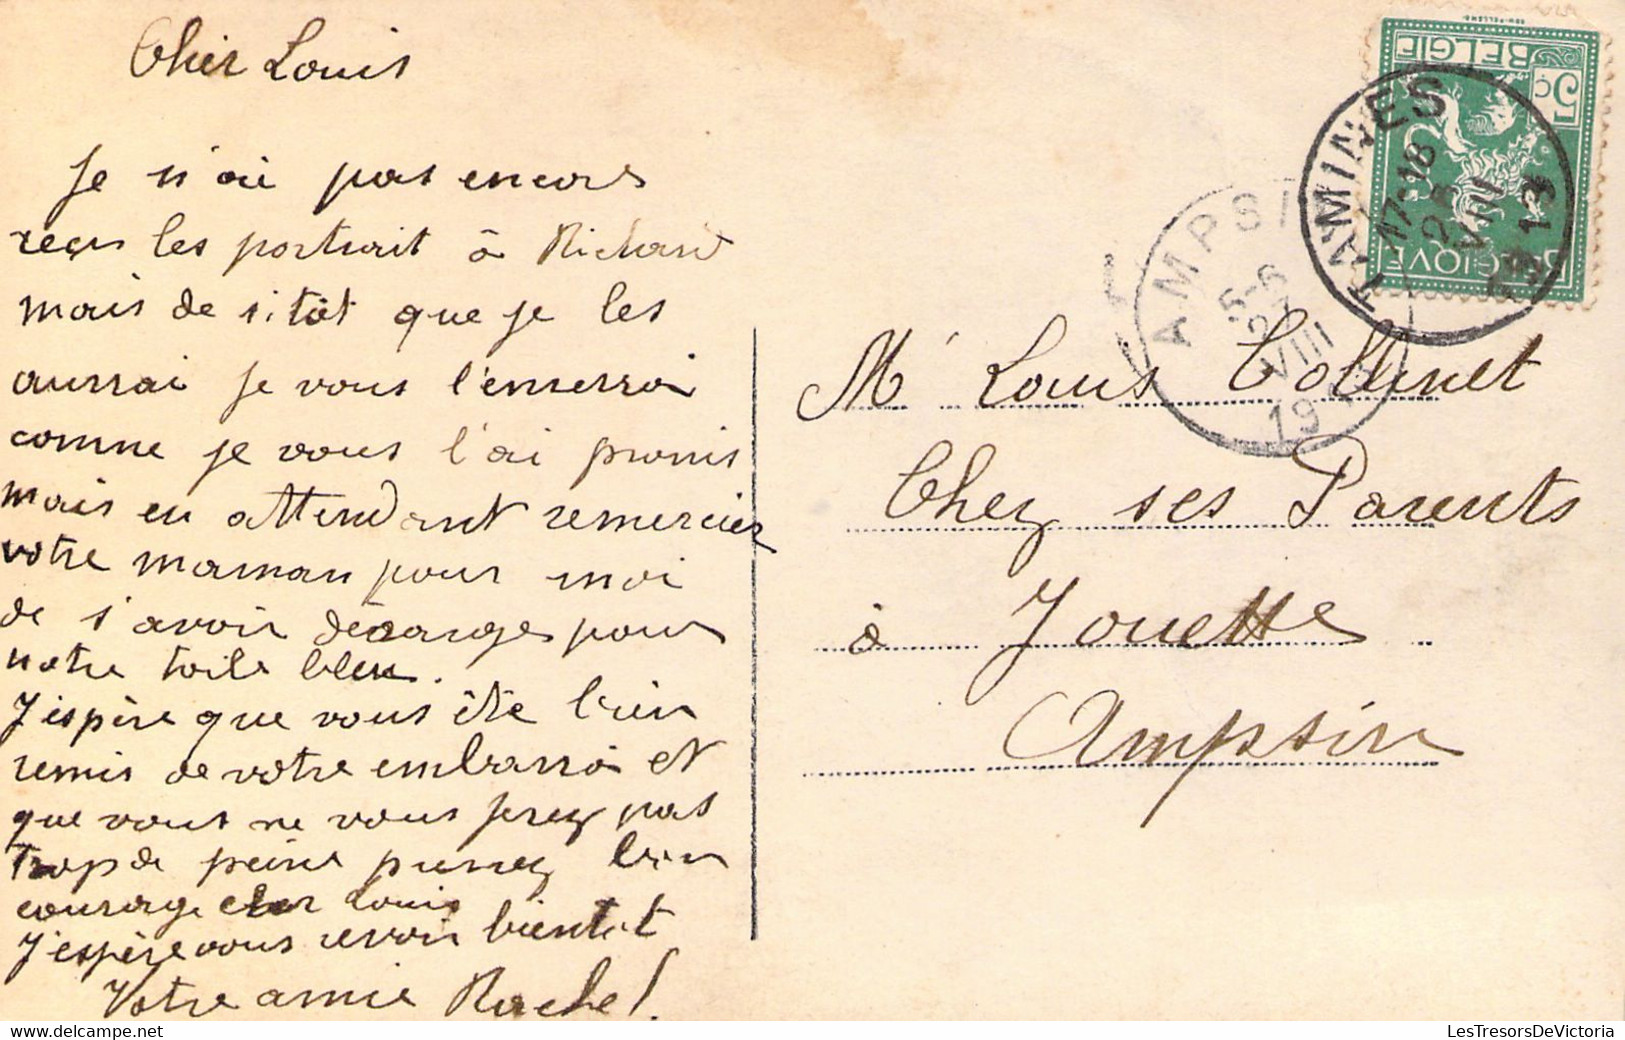 Cher Louis
Je n'ai pas encore
reçus les portrait à Richard
mais de sitôt que je les
aurrai je vous l'enverrai
comme je vous l'ai promis
mais en attendant remercier
votre maman pour moi
de s'avoir déranger pour
notre toile bleu.
J'espère que vous ête bien
remis de votre embarra et
que vous ne vous ferez pas
trop de peine prenez bien
courage cher Louis
J'espère vous revoir bientôt
Votre amie Rachel.
BELGIE
5 C
BELGIQUE
TAMINES
17-18
26
VIII
1913
AMPSIN
5-6
27
VIII
19
Mr Louis Collinet
Chez ses Parents
à Jouette
Ampsin
LesTresorsDeVictoria
LesTresorsDeVictoria.delcampe.net